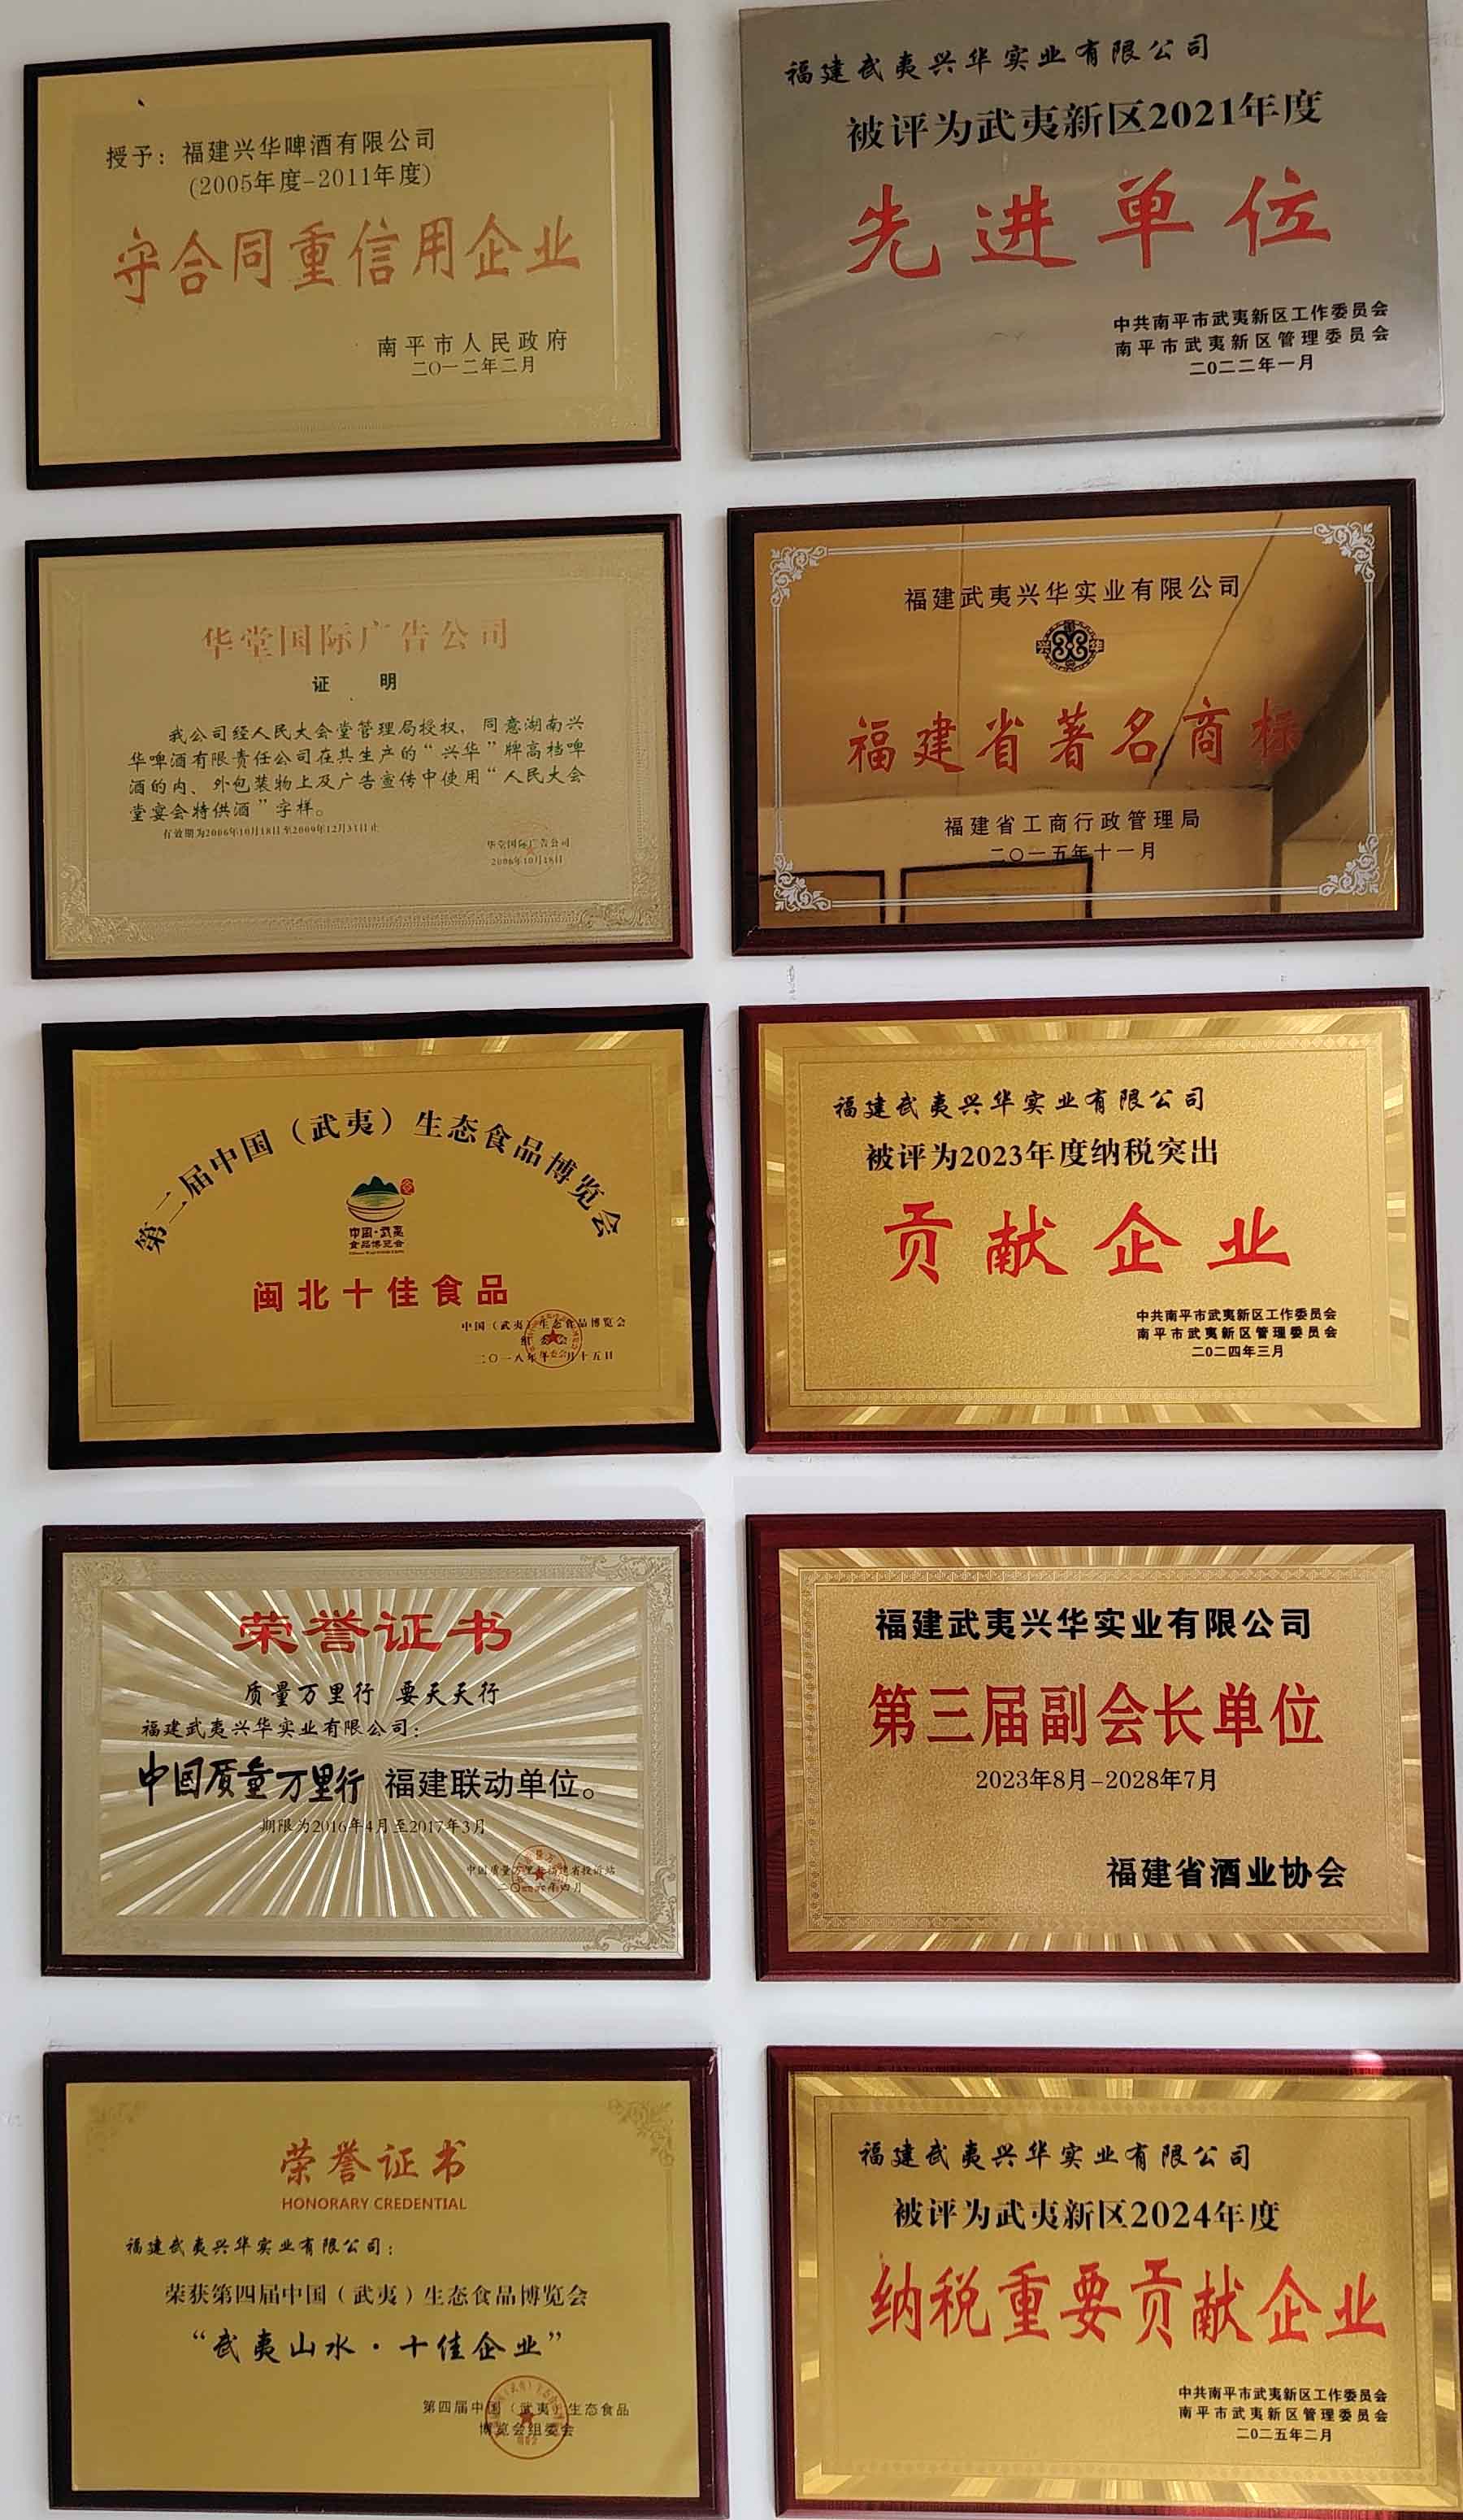 授予：福建兴华啤酒有限公司
(2005年度-2011年度)
守合同重信用企业
南平市人民政府
二〇一二年二月
福建武夷兴华实业有限公司
被评为武夷新区2021年度
先进单位
中共南平市武夷新区工作委员会
南平市武夷新区管理委员会
二〇二二年一月
华堂国际广告公司
证 明
我公司经人民大会堂管理局授权，同意湖南兴
华啤酒有限责任公司在其生产的“兴华”牌高档啤
酒的内、外包装物上及广告宣传中使用“人民大会
堂宴会特供酒”字样。
有效期为2006年10月18日至2009年12月31日止
华堂国际广告公司
2006年10月18日
福建武夷兴华实业有限公司
福建省著名商标
福建省工商行政管理局
二〇一五年十一月
第二届中国（武夷）生态食品博览会
中国·武夷
食品博览会
闽北十佳食品
中国（武夷）生态食品博览会
组委会
二〇一八年十一月十五日
福建武夷兴华实业有限公司
被评为2023年度纳税突出
贡献企业
中共南平市武夷新区工作委员会
南平市武夷新区管理委员会
二〇二四年三月
荣誉证书
质量万里行 要天天行
福建武夷兴华实业有限公司：
中国质量万里行 福建联动单位。
期限为2016年4月至2017年3月
中国质量万里行福建省投诉站
二〇一六年四月
福建武夷兴华实业有限公司
第三届副会长单位
2023年8月-2028年7月
福建省酒业协会
荣誉证书
HONORARY CREDENTIAL
福建武夷兴华实业有限公司：
荣获第四届中国（武夷）生态食品博览会
“武夷山水·十佳企业”
第四届中国（武夷）生态食品
博览会组委会
福建武夷兴华实业有限公司
被评为武夷新区2024年度
纳税重要贡献企业
中共南平市武夷新区工作委员会
南平市武夷新区管理委员会
二〇二五年二月